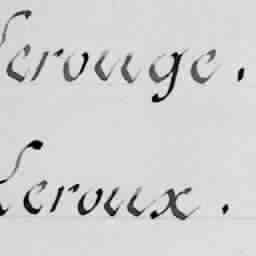 Lerouge.
Leroux.